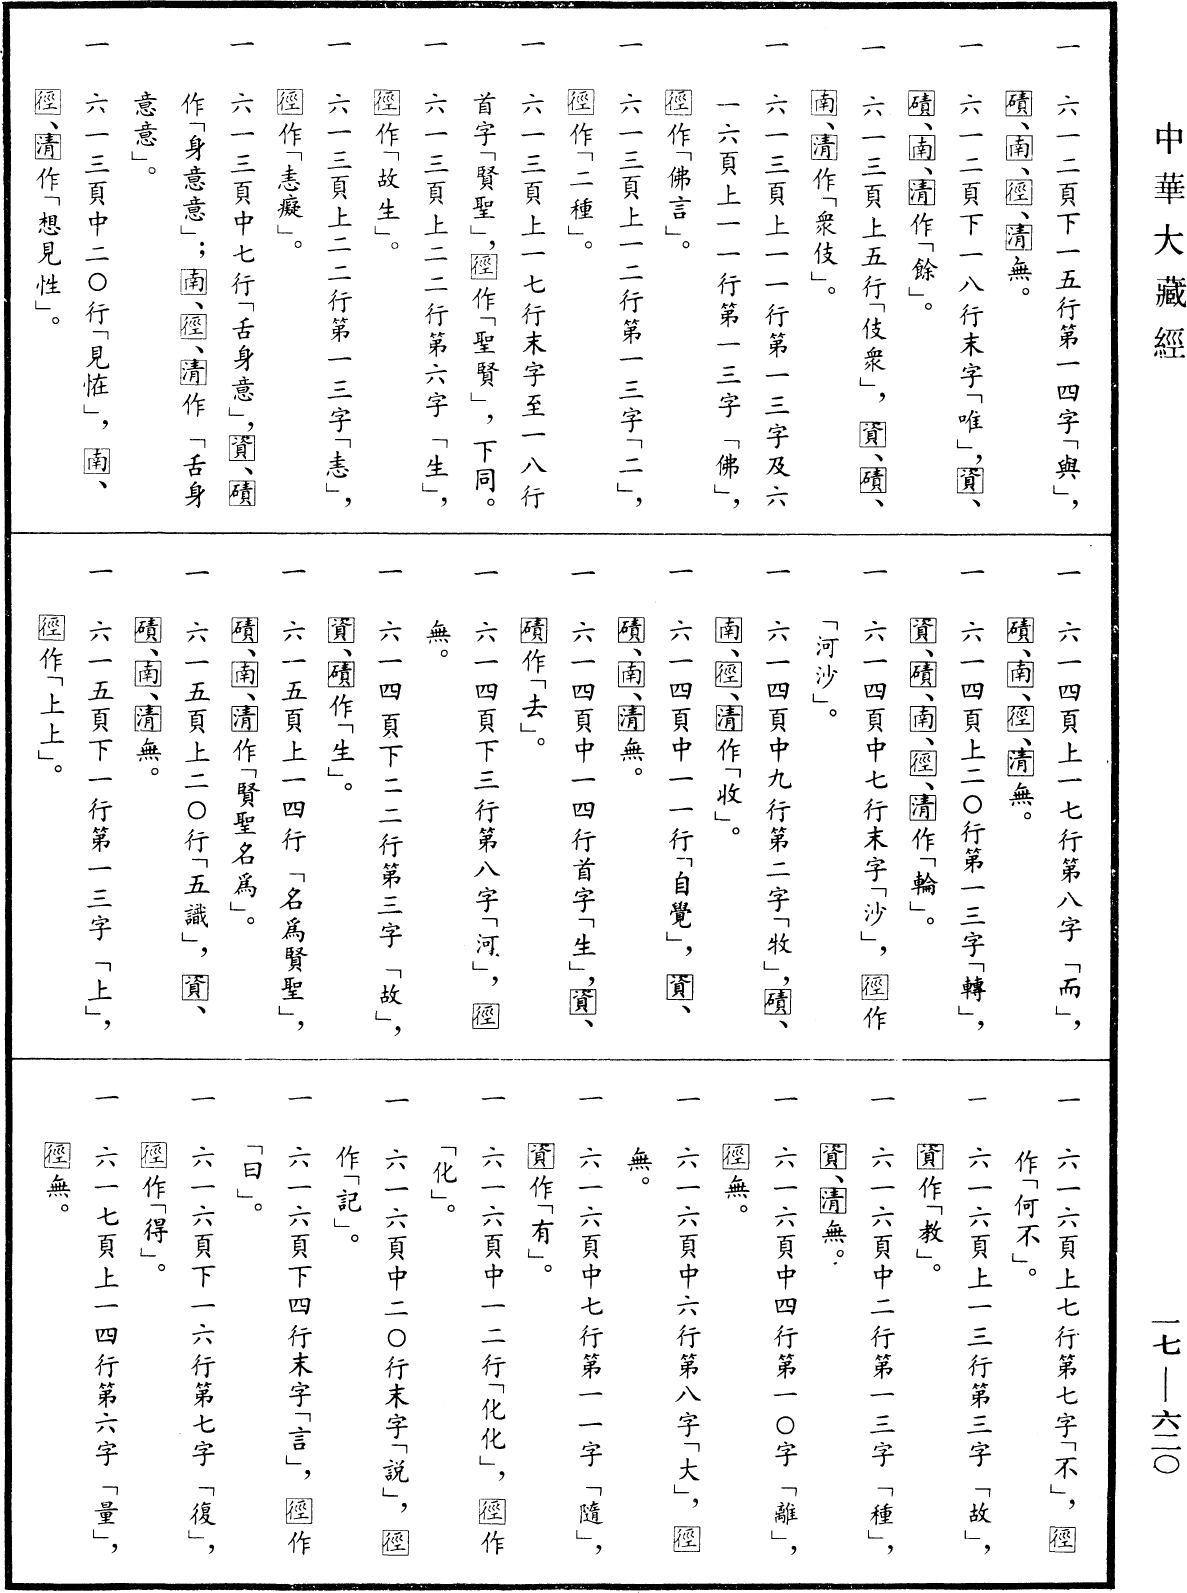 中華大藏經
一七—六二〇
一　六一二頁下一五行第一四字「與」，
磧、南、徑、清無。
一　六一二頁下一八行末字「唯」，資、
磧、南、清作「餘」。
一　六一三頁上五行「伎衆」，資、磧、
南、清作「衆伎」。
一　六一三頁上一一行第一三字及六
一六頁上一一行第一三字「佛」，
徑作「佛言」。
一　六一三頁上一二行第一三字「二」，
徑作「二種」。
一　六一三頁上一七行末字至一八行
首字「賢聖」，徑作「聖賢」，下同。
一　六一三頁上二二行第六字「生」，
徑作「故生」。
一　六一三頁上二二行第一三字「恚」，
徑作「恚癡」。
一　六一三頁中七行「舌身意」，資、磧
作「身意意」；南、徑、清作「舌身
意意」。
一　六一三頁中二〇行「見恠」，南、
徑、清作「想見性」。
一　六一四頁上一七行第八字「而」，
磧、南、徑、清無。
一　六一四頁上二〇行第一三字「轉」，
資、磧、南、徑、清作「輪」。
一　六一四頁中七行末字「沙」，徑作
「河沙」。
一　六一四頁中九行第二字「牧」，磧、
南、徑、清作「收」。
一　六一四頁中一一行「自覺」，資、
磧、南、清無。
一　六一四頁中一四行首字「生」，資、
磧作「去」。
一　六一四頁下三行第八字「河」，徑
無。
一　六一四頁下二二行第三字「故」，
資、磧作「生」。
一　六一五頁上一四行「名爲賢聖」，
磧、南、清作「賢聖名爲」。
一　六一五頁上二〇行「五識」，資、
磧、南、清無。
一　六一五頁下一行第一三字「上」，
徑作「上上」。
一　六一六頁上七行第七字「不」，徑
作「何不」。
一　六一六頁上一三行第三字「故」，
資作「教」。
一　六一六頁中二行第一三字「種」，
資、清無。
一　六一六頁中四行第一〇字「離」，
徑無。
一　六一六頁中六行第八字「大」，徑
無。
一　六一六頁中七行第一一字「隨」，
資作「有」。
一　六一六頁中一二行「化化」，徑作
「化」。
一　六一六頁中二〇行末字「説」，徑
作「記」。
一　六一六頁下四行末字「言」，徑作
「曰」。
一　六一六頁下一六行第七字「復」，
徑作「得」。
一　六一七頁上一四行第六字「量」，
徑無。